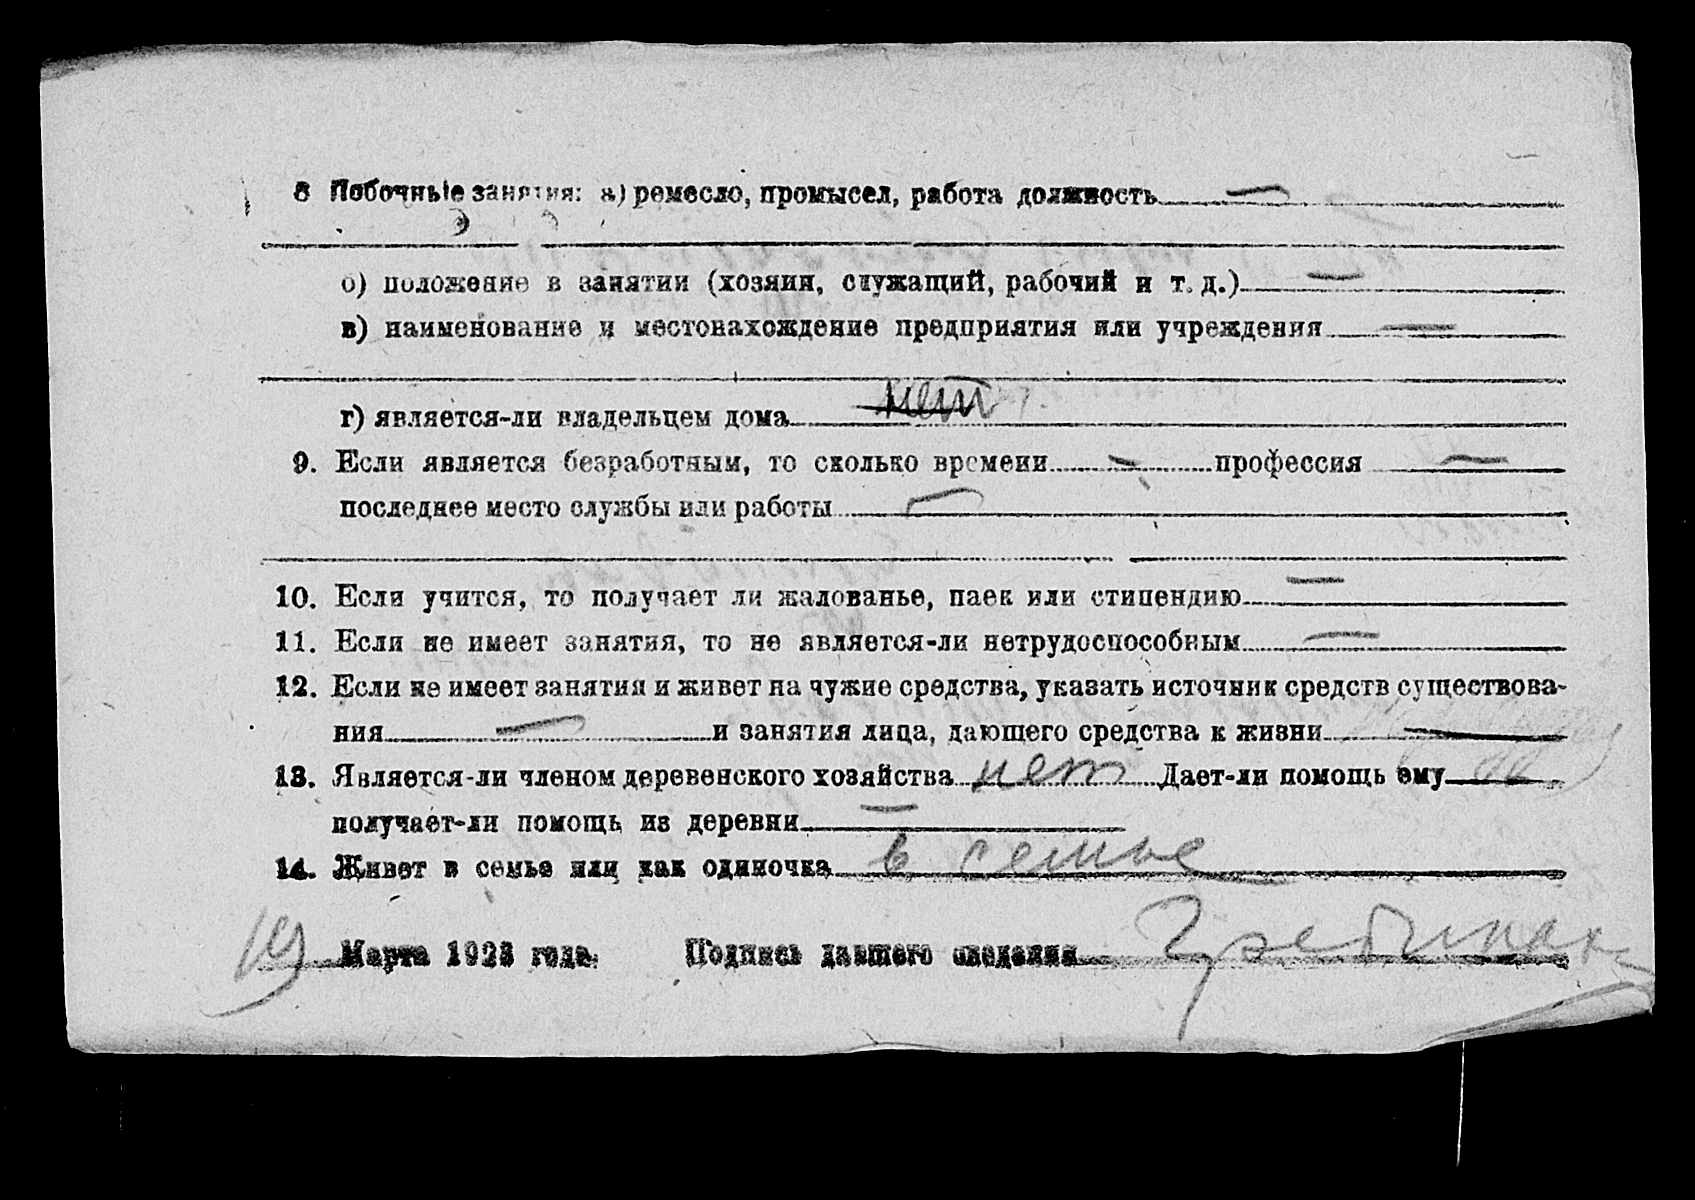 8 Побочные занятия: а) ремесло, промысел, работа должность —
б) положение в занятии (хозяин, служащий, рабочий и т. д.) —
в) наименование и местонахождение предприятия или учреждения —
г) является-ли владельцем дома нет
9. Если является безработным, то сколько времени — профессия —
последнее место службы или работы —
10. Если учится, то получает ли жалованье, паек или стипендию —
11. Если не имеет занятия, то не является-ли нетрудоспособным —
12. Если не имеет занятия и живет на чужие средства, указать источник средств существова-
ния — и занятия лица, дающего средства к жизни —
13. Является-ли членом деревенского хозяйства нет Дает-ли помощь ему —
получает-ли помощь из деревни —
14. Живет в семье или как одиночка в семье
19 Марта 1923 года. Подпись давшего сведения